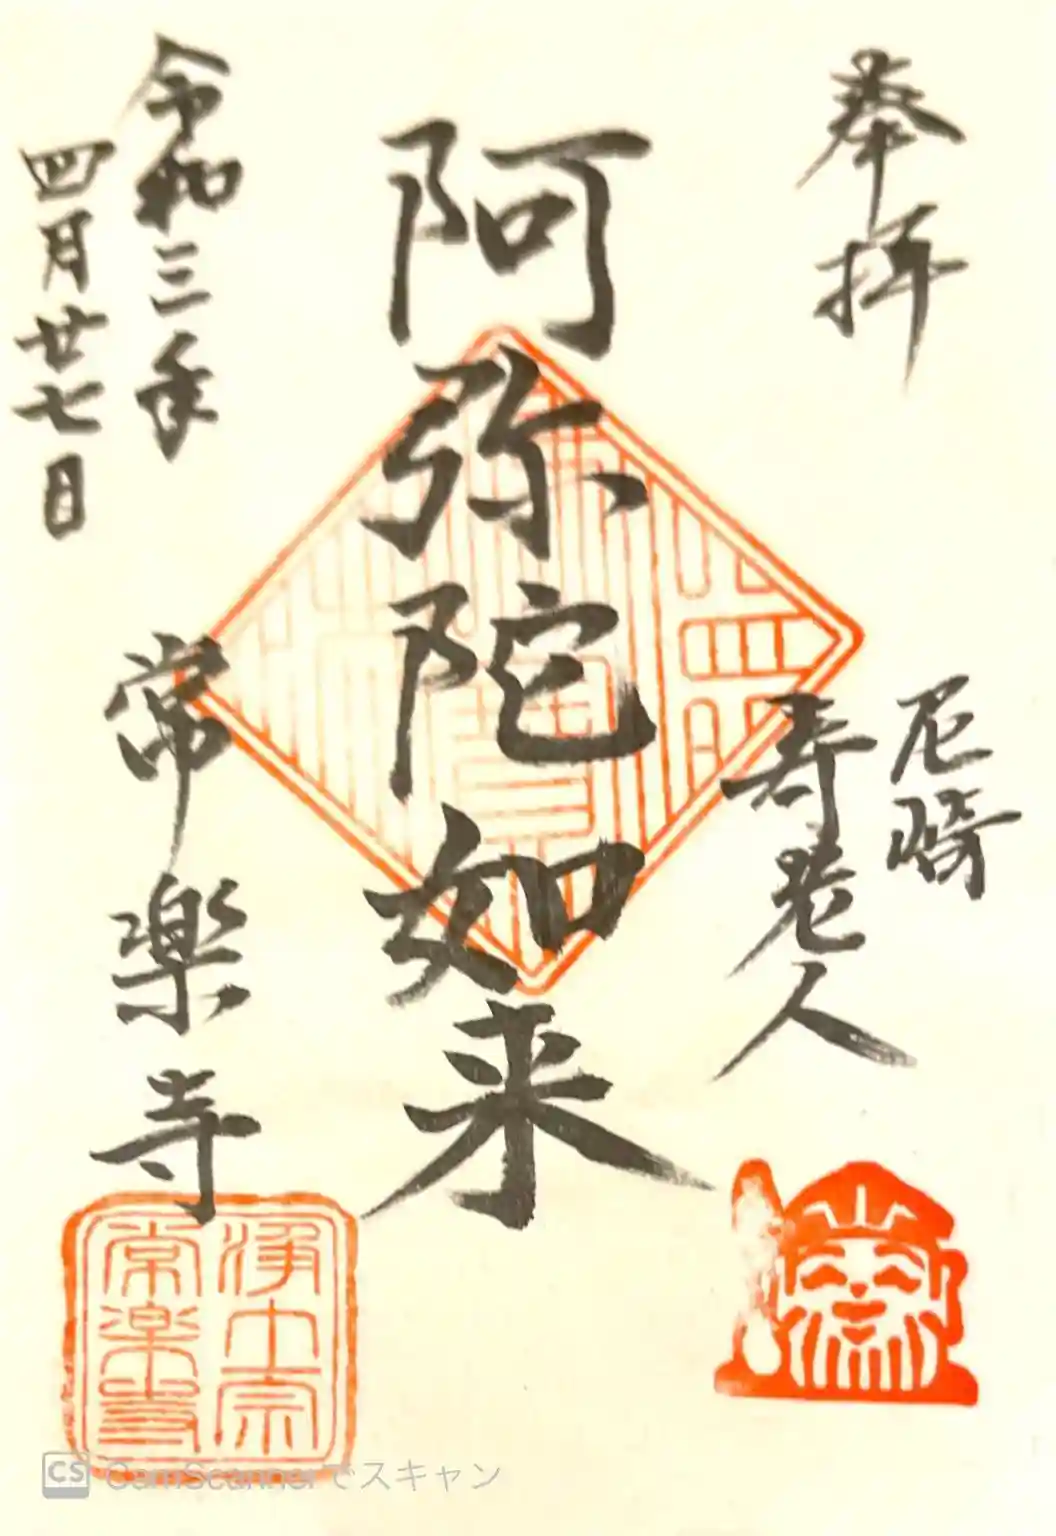 奉拝
尼崎
寿老人
阿弥陀如来
令和三年
四月廿七日
常楽寺
浄土宗
常楽寺
CS CamScannerでスキャン